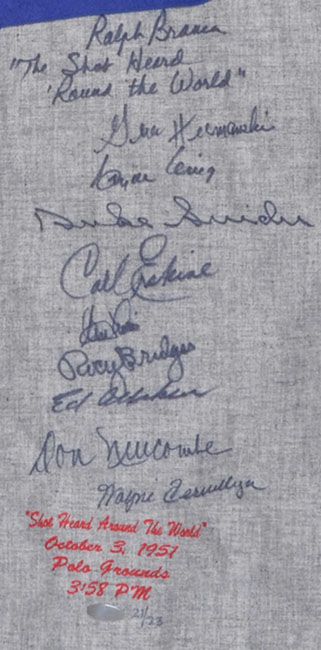 Ralph Branca
"The Shot Heard
'Round the World"
Gene Hermanski
Duke Snider
Carl Erskine
Rocky Bridges
Ed
Don Newcombe
Wayne Terwilliger
"Shot Heard Around The World"
October 3, 1951
Polo Grounds
3:58 PM
21/23